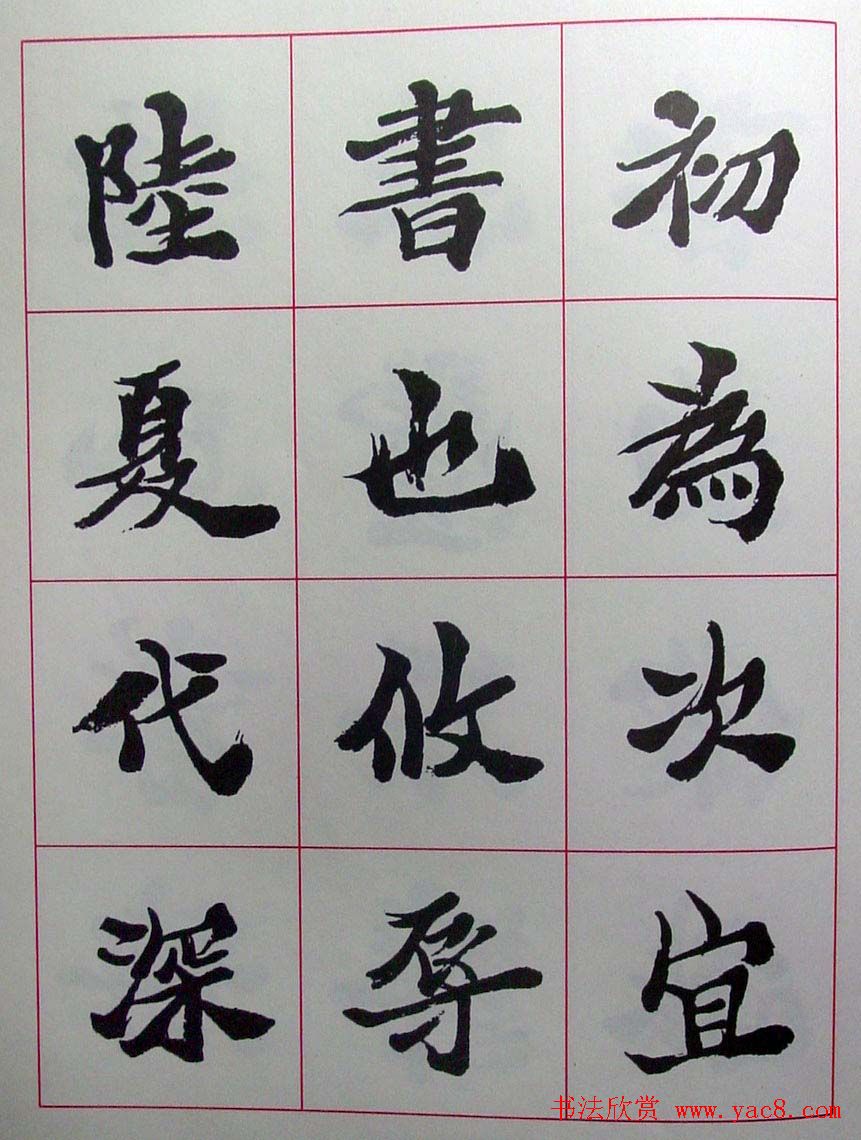 初為次宜
書也攸辱
陸夏代深
书法欣赏 www.yac8.com